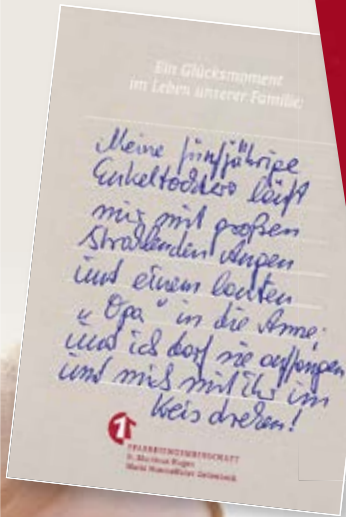 Ein Glücksmoment
im Leben unserer Familie:
Meine fünfjährige
Enkeltochter läuft
mir mit großen
strahlenden Augen
und einem lauten
„Opa“ in die Arme;
und ich darf sie auffangen
und mich mit ihr im
Kreis drehen!
PFARREIENGEMEINSCHAFT